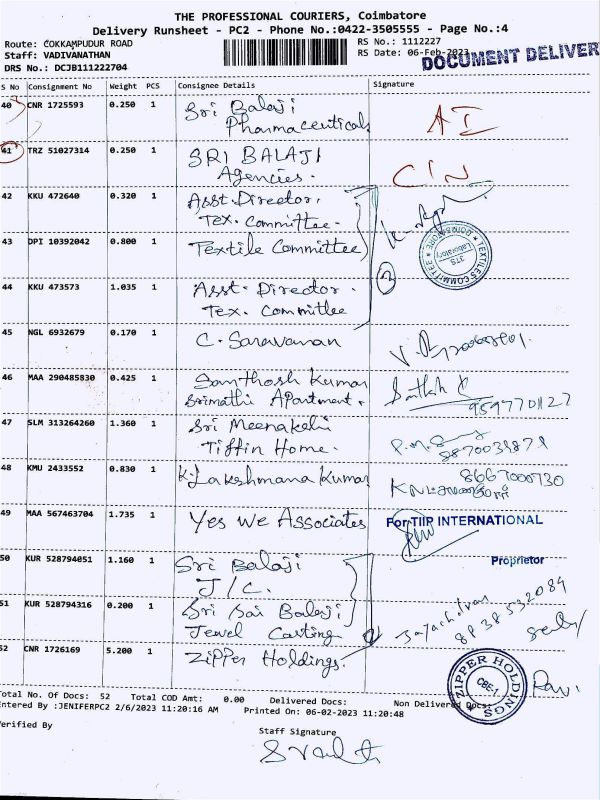 THE PROFESSIONAL COURIERS, Coimbatore
Delivery Runsheet - PC2 - Phone No.:0422-3505555 - Page No.:4
Route: COKKAMPUDUR ROAD
Staff: VADIVANATHAN
DRS No.: DCJB111222704
RS No.: 1112227
RS Date: 06-Feb-2023
DOCUMENT DELIVER
S No Consignment No Weight PCS Consignee Details Signature
40 CNR 1725593 0.250 1 Sri Balaji
Pharmaceuticals
AI
41 TRZ 51027314 0.250 1 SRI BALAJI
Agencies.
CIN
42 KKU 472640 0.320 1 Asst. Director.
Tex. Committee.
43 DPI 10392042 0.800 1 Textile Committee
TEXTILES COMMITTEE
COIMBATORE
Laboratory
44 KKU 473573 1.035 1 Asst. Director.
Tex. Committee
45 NGL 6932679 0.170 1 C. Saravanan
46 MAA 290485830 0.425 1 Santhosh Kumar
Srimathi Apartment.
9597701127
47 SLM 313264260 1.360 1 Sri Meenakshi
Tiffin Home.
8870031871
48 KMU 2433552 0.830 1 K. Lakshmana Kumar
8667000730
49 MAA 567463704 1.735 1 Yes We Associates
For TIIP INTERNATIONAL
Proprietor
50 KUR 528794051 1.160 1 Sri Balaji
J/C.
51 KUR 528794316 0.200 1 Sri Sai Balaji
Jewel Casting
8838532084
52 CNR 1726169 5.200 1 Zipper Holdings.
ZIPPER HOLDINGS
CBE-1
Ravi
Total No. Of Docs: 52 Total COD Amt: 0.00 Delivered Docs: Non Delivered Docs:
Entered By :JENIFERPC2 2/6/2023 11:20:16 AM Printed On: 06-02-2023 11:20:48
Verified By
Staff Signature